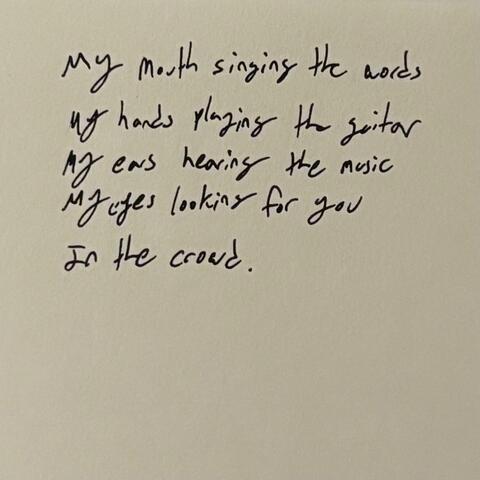 My mouth singing the words
My hands playing the guitar
My ears hearing the music
My eyes looking for you
In the crowd.